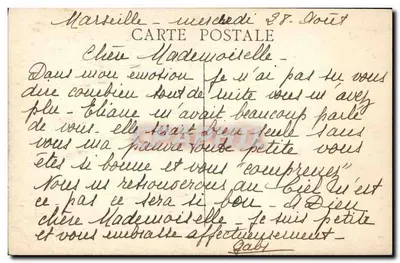 Marseille - mercredi 28 Août
CARTE POSTALE
Chère Mademoiselle -
Dans mon émotion je n'ai pas su vous
dire combien tout de suite vous m'avez
plu - Eliane m'avait beaucoup parlé
de vous. elle serait bien seule sans
vous ma pauvre toute petite vous
êtes si bonne et vous "comprenez"
Nous nous retrouverons au Ciel n'est
ce pas ce sera si bon - A Dieu
chère Mademoiselle - je suis petite
et vous embrasse affectueusement -
Gaby